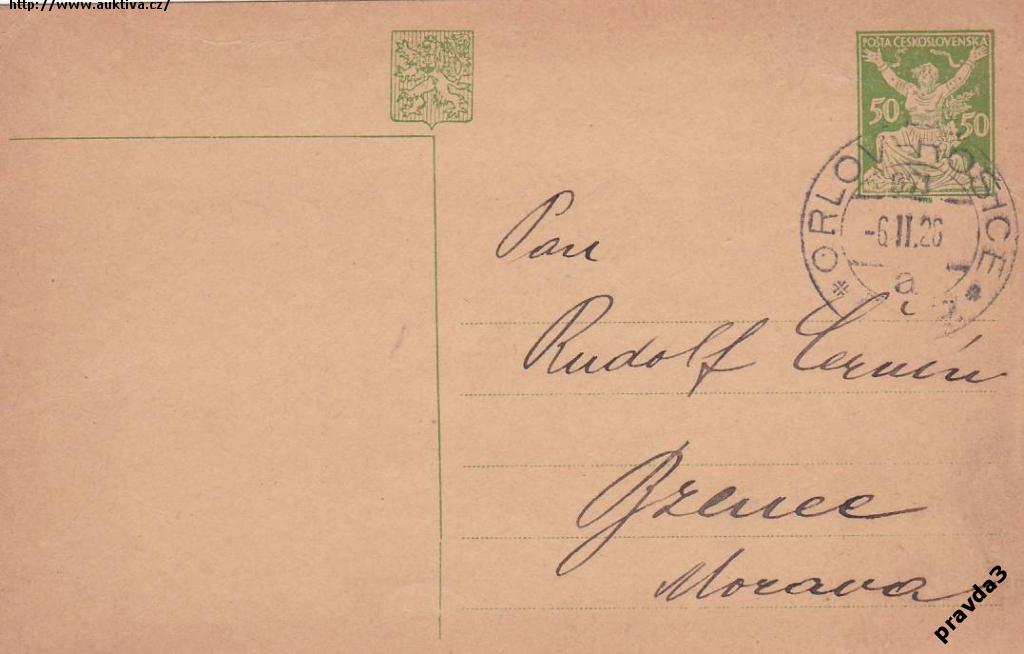 http://www.auktiva.cz/
POŠTA ČESKOSLOVENSKÁ
50 50
ORLOV ROSICE
-6.II.26
a
Pan
Rudolf Černín
Bzenec
Morava
pravda3